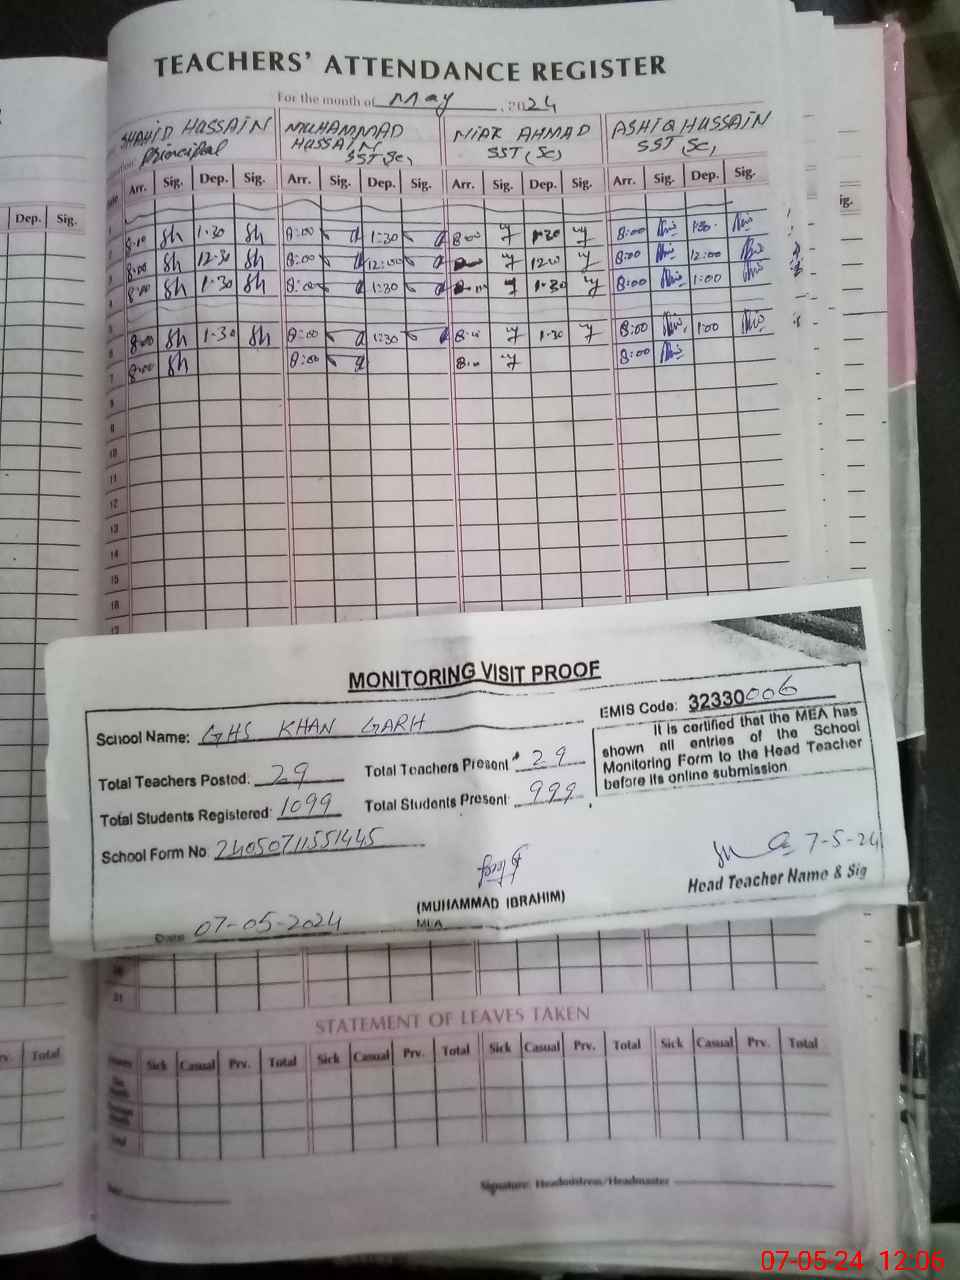 TEACHERS' ATTENDANCE REGISTER
For the month of May, 2024
SHAHID HUSSAIN Principal MUHAMMAD HUSSAIN SST(Sc) NIAZ AHMAD SST (Sc) ASHIQ HUSSAIN SST (Sc)
Dep. Sig. Arr. Sig. Dep. Sig. Arr. Sig. Dep. Sig. Arr. Sig. Dep. Sig. Arr. Sig. Dep. Sig. ig.
1
2 8:00 Sh 1-30 Sh 8:00 1:30 8:00 1-30 8:00 1:30
3 8:00 Sh 12-30 Sh 8:00 12:00 8:00 12:00
4 8:00 Sh 1-30 Sh 8:00 1:30 1-30 8:00 1:00
5
6 8:00 Sh 1-30 Sh 8:00 1:30 8:00 1-30 8:00 1:00
7 8:00 Sh 8:00 8:00 8:00
8
9
10
11
12
13
14
15
16
17
MONITORING VISIT PROOF
School Name: GHS KHAN GARH EMIS Code: 32330006
Total Teachers Posted: 29 Total Teachers Present: 29
Total Students Registered: 1099 Total Students Present: 999
It is certified that the MEA has
shown all entries of the School
Monitoring Form to the Head Teacher
before its online submission.
School Form No: 24050711551445
7-5-24
Head Teacher Name & Sig
(MUHAMMAD IBRAHIM)
MEA
Date: 07-05-2024
30
31
STATEMENT OF LEAVES TAKEN
rv. Total Sick Casual Prv. Total Sick Casual Prv. Total Sick Casual Prv. Total Sick Casual Prv. Total
Total
Signature: Headmistress/Headmaster
07-05-24 12:06